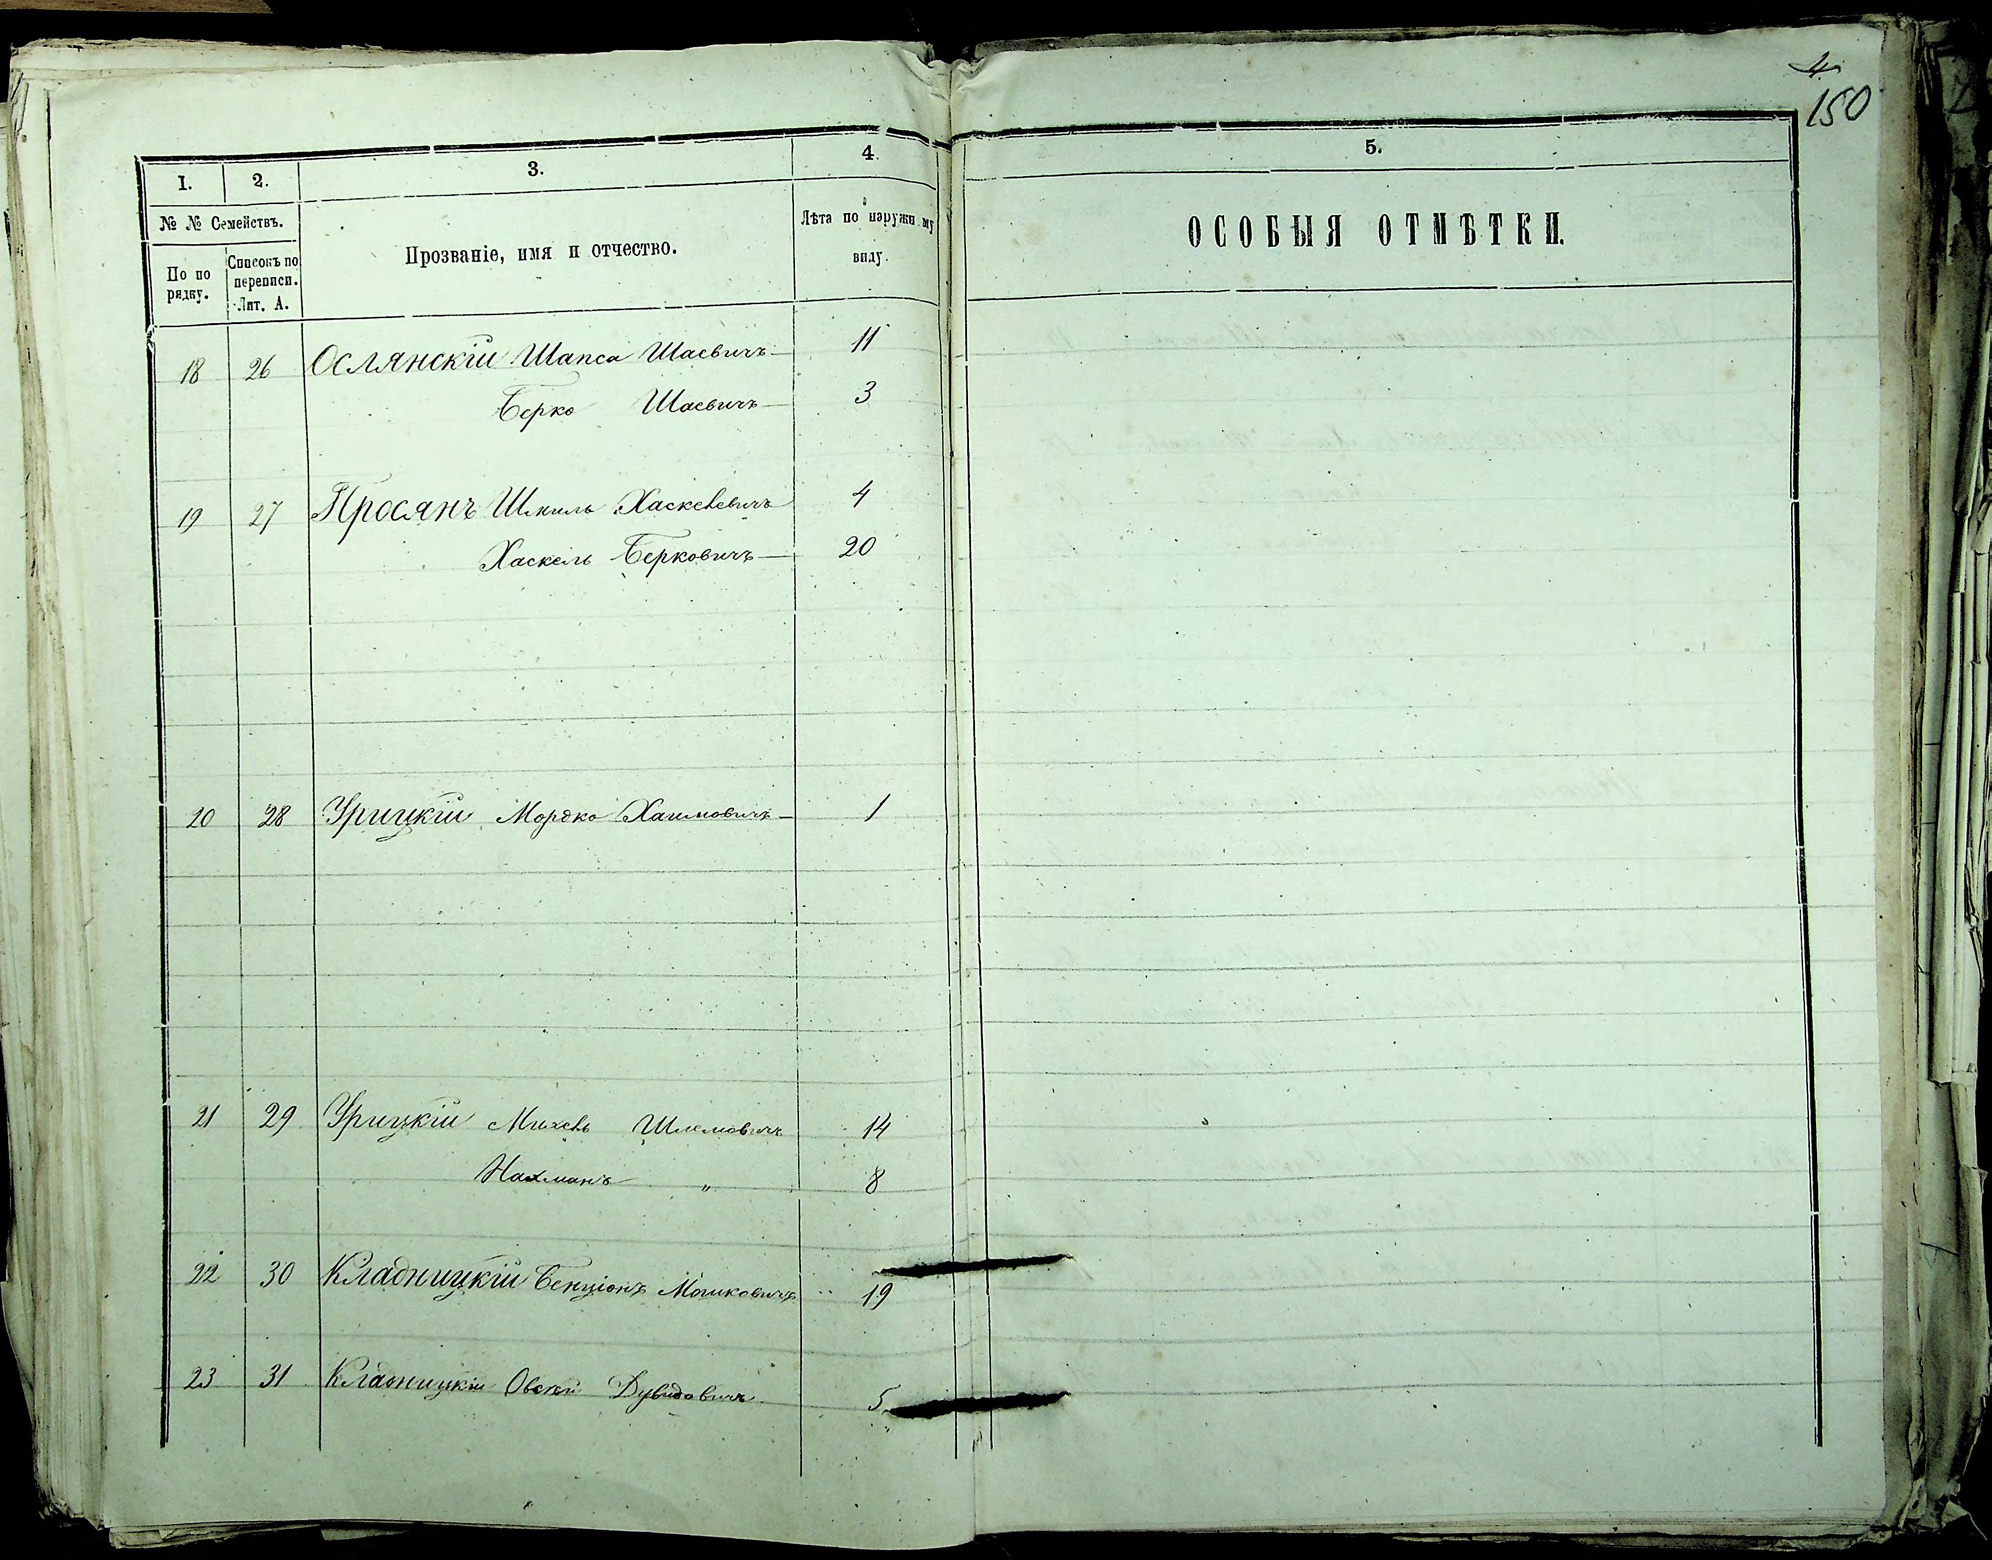 4
150
1. 2. 3. 4 5.
№ № Семействъ.
По по рядку.
Списокъ по переписи. Лит. А.
Прозваніе, имя и отчество.
Лѣта по наружн му виду.
ОСОБЫЯ ОТМѢТКИ.
18 26 Ослянскій Шапса Шаевичъ 11
Берко Шаевичъ 3
19 27 Просянъ Шмиль Хаскелевичъ 4
Хаскель Берковичъ 20
20 28 Урицкій Мордко Хаимовичъ 1
21 29 Урицкій Михель Шлемовичъ 14
Нахманъ " 8
22 30 Кладницкій Бенціонъ Мошковичъ 19
23 31 Кладницкій Овсей Дувидовичъ 5